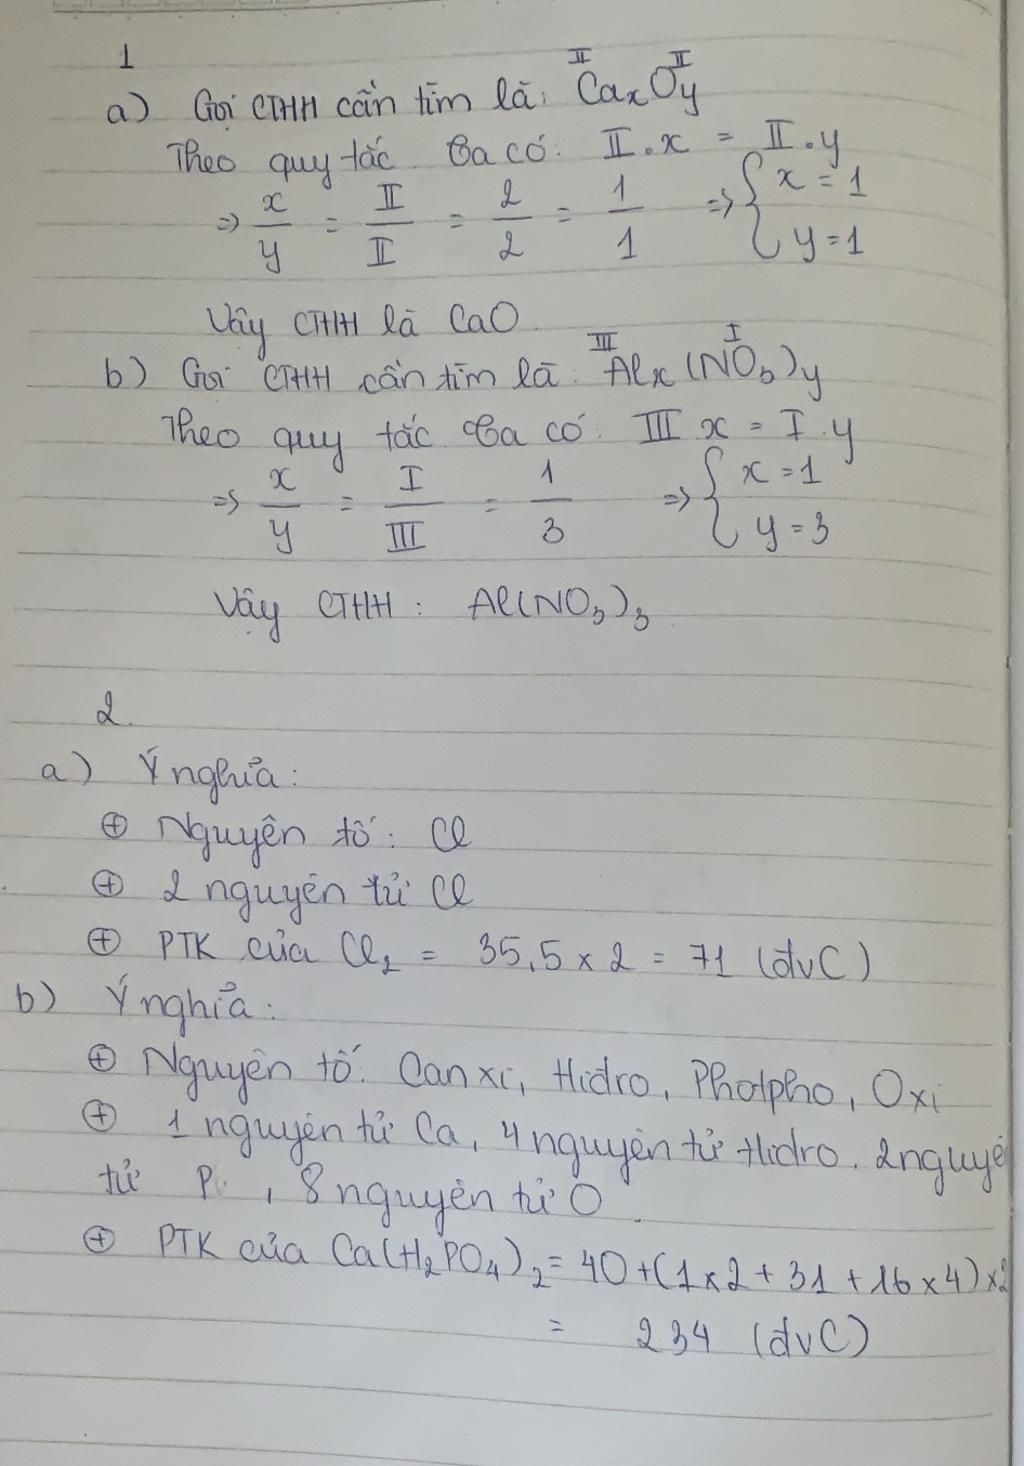 1
a) Gọi CTHH cần tìm là: CaxOy (II, II)
Theo quy tắc ta có: II.x = II.y
=> x/y = II/II = 2/2 = 1/1 => { x = 1
y = 1
Vậy CTHH là CaO.
b) Gọi CTHH cần tìm là: Alx(NO3)y (III, I)
Theo quy tắc ta có: III x = I.y
=> x/y = I/III = 1/3 => { x = 1
y = 3
Vậy CTHH: Al(NO3)3
2.
a) Ý nghĩa:
⊕ Nguyên tố: Cl
⊕ 2 nguyên tử Cl
⊕ PTK của Cl2 = 35,5 x 2 = 71 (đvC)
b) Ý nghĩa:
⊕ Nguyên tố: Canxi, Hidro, Photpho, Oxi
⊕ 1 nguyên tử Ca, 4 nguyên tử Hidro, 2 nguyê
tử P, 8 nguyên tử O.
⊕ PTK của Ca(H2PO4)2 = 40 + (1 x 2 + 31 + 16 x 4) x 2
= 234 (đvC)